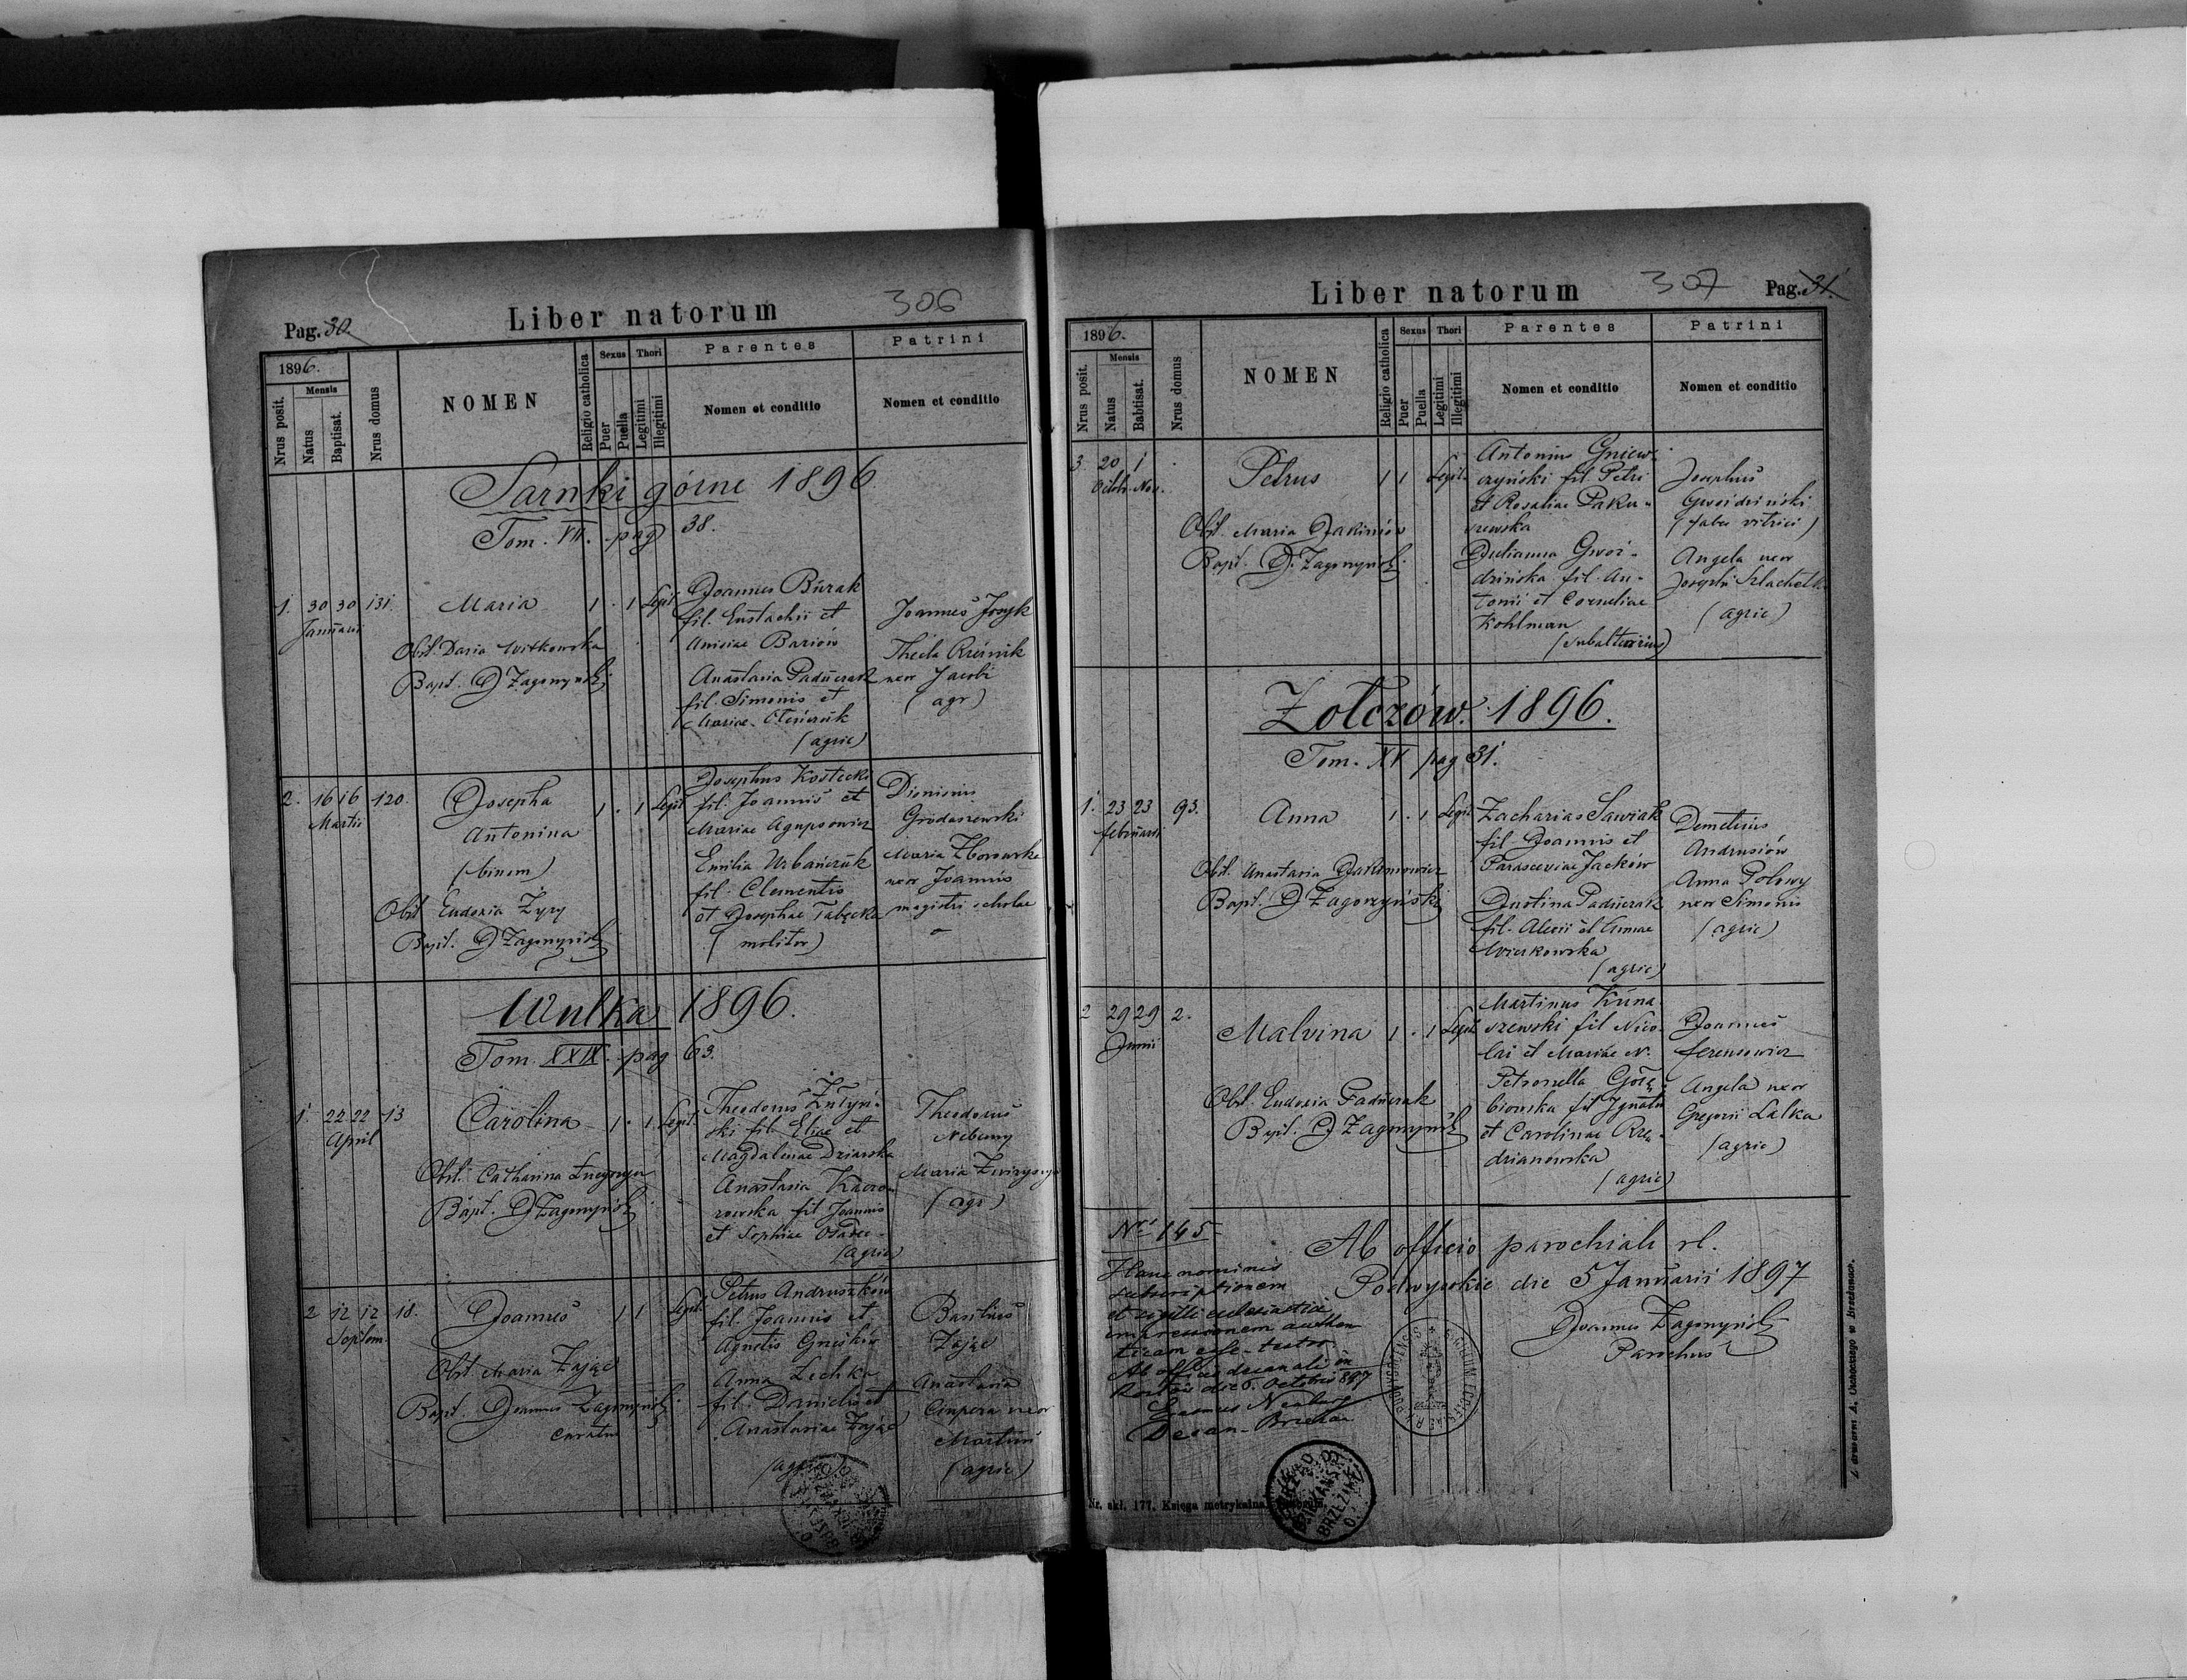 Pag. 30
Liber natorum
306
1896.
Nrus posit.
Mensis
Natus
Baptisat.
Nrus domus
NOMEN
Religio catholica
Sexus
Puer
Puella
Thori
Legitimi
Illegitimi
Parentes
Nomen et conditio
Patrini
Nomen et conditio
Sarnki górne 1896
Tom. VII. pag 38.
1. 30 30 131. Maria 1 . 1 Legit.
Januarii
Obst. Daria Witkowska
Bapt. J Zagorzyński
Joannes Burak
fil. Eustachii et
Anisiae Bariów
Anastasia Paduczak
fil. Simonis et
Mariae
(agric)
Joannes Josyk
Thecla Rieśnik
uxor Jacobi
(agr)
2. 16 16 120. Josepha 1 . 1 Legit
Martii
Antonina
(binom)
Obst Eudoxia Żyry
Bapt. J Zagorzyński
Josephus Kostecki
fil. Joannis et
Mariae Agapsowicz
Emilia Urbańczuk
fil. Clementis
et Josephae Tabęcka
(molitor)
Dionisius
Grodaszewski
Maria Zborowska
uxor Joannis
magistri scholae
Wulka 1896.
Tom. XXIX. pag 63.
1. 22 22 13 Carolina 1 . 1 Legit.
April
Obst. Catharina
Bapt. J Zagorzyński
Theodorus Żułyń-
ski fil Eliae et
Magdalenae Dziarska
Anastasia Kaczo-
rowska fil Joannis
et Sophiae
(agric)
Theodorus
Nebesny
Maria
(agr)
2 12 12 18. Joannes 1 1 Legit.
Septem.
Obst Maria Zając
Bapt. Joannes Zagorzyński
curatus
Petrus Andruszków
fil. Joannis et
Agnetis
Anna Lechka
fil. Danielis et
Anastasiae Zając
(agric)
Basilius
Zając
Anastasia
Cimpera uxor
Martini
(agric)
Liber natorum
307
Pag. 31.
1896.
Nrus posit.
Mensis
Natus
Babtisat.
Nrus domus
NOMEN
Religio catholica
Sexus
Puer
Puella
Thori
Legitimi
Illegitimi
Parentes
Nomen et conditio
Patrini
Nomen et conditio
3 20 1 Petrus 1 1 Legit.
Octob. Nov.
Obst. Maria Jakimów
Bapt. J. Zagorzyński
Antonius Gniew-
czyński fil. Petri
et Rosaliae Paku-
szewska
Julianna Gwoź-
dzińska fil. An-
tonii et Corneliae
Kohlman
(subalternius)
Josephus
Gwoździński
(faber vitrici)
Angela uxor
Josephi Szlachetka
(agric)
Zołczów. 1896.
Tom. XV pag 31.
1. 23 23 93. Anna 1 . 1 Legit
februarii
Obst. Anastasia Jakimowicz
Bapt. J Zagorzyński
Zacharias Sawiak
fil. Joannis et
Parasceviae Jacków
Justina Paduczak
fil. Alexii et Annae
Wieskowska
(agric)
Demetrius
Andrusiów
Anna Połowy
uxor Simonis
(agric)
2 29 29 2. Malvina 1 . 1 Legit
Junii
Obst. Eudoxia Paduczak
Bapt. J Zagorzyński
Martinus Kuna-
szewski fil Nico-
lai et Mariae N.
Petronella Gołę-
biowska fil Ignatii
et Carolinae Rzą-
drianowska
(agric)
Joannes
ferensowicz
Angela uxor
Gregorii Lalka
(agric)
Nr. 145
Hanc nominis
subscriptionem
et sigilli ecclesiastici
impressionem authen
ticam esse testor.
Ab officio decanali in
die 6. Octobris 897
Erasmus
Decan.
Ab officio parochiali rl.
Podwysokie die 5 Januarii 1897
Joannes Zagorzyński
Parochus
Nr. skł. 177. Księga metrykalna
Z drukarni A. Uschockiego w Brzeżanach.